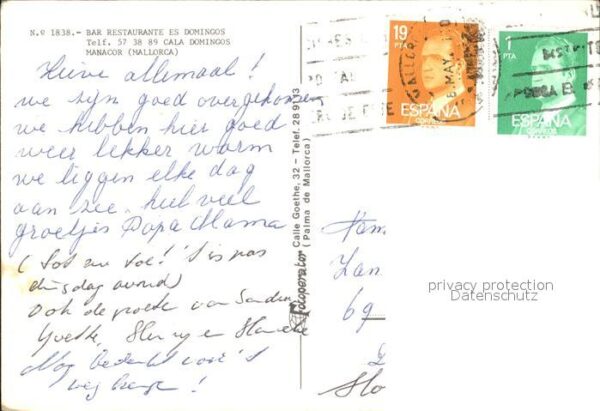 N.º 1838.- BAR RESTAURANTE ES DOMINGOS
Telf. 57 38 89 CALA DOMINGOS
MANACOR (MALLORCA)
Lieve allemaal!
we zijn goed overgekomen
we hebben hier goed
weer lekker warm
we liggen elke dag
aan zee. heel veel
groetjes Papa Mama
(Tot nu toe! 't is pas
dinsdag avond)
Ook de groeten van Sander
Yvette, Henny en
Nog bedankt voor 't
weg brengen!
Fotoperator Calle Goethe, 32 - Telef. 28 91 13
(Palma de Mallorca)
19
PTA
ESPAÑA
CORREOS
1
PTA
ESPAÑA
CORREOS
MAY
Fam
69
privacy protection
Datenschutz